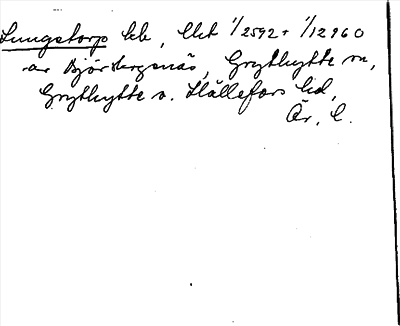 Lungstorp lhb, Uht 1/2592 + 1/12960
av Björsbergsnäs, Grythytte sn,
Grythytte o. Hällefors hd,
Ör. l.